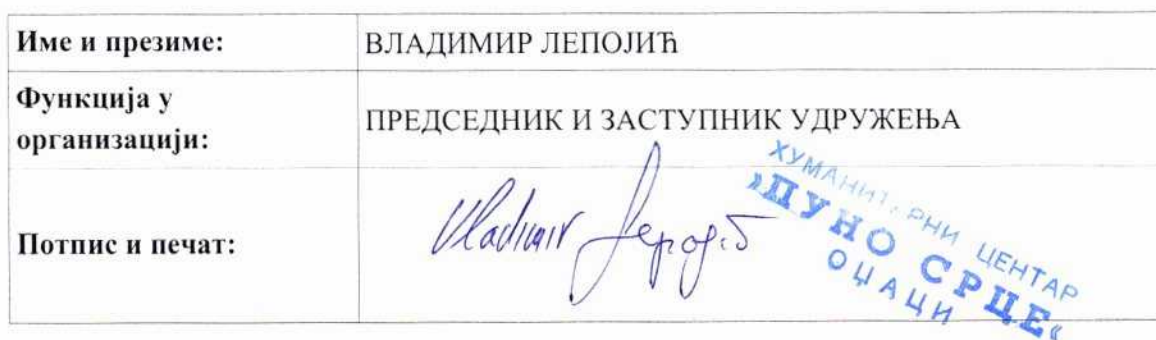 Име и презиме:
ВЛАДИМИР ЛЕПОЈИЋ
Функција у
организацији:
ПРЕДСЕДНИК И ЗАСТУПНИК УДРУЖЕЊА
Потпис и печат:
Vladimir Лепојић
ХУМАНИТАРНИ ЦЕНТАР
»ПУНО СРЦЕ«
ОЏАЦИ